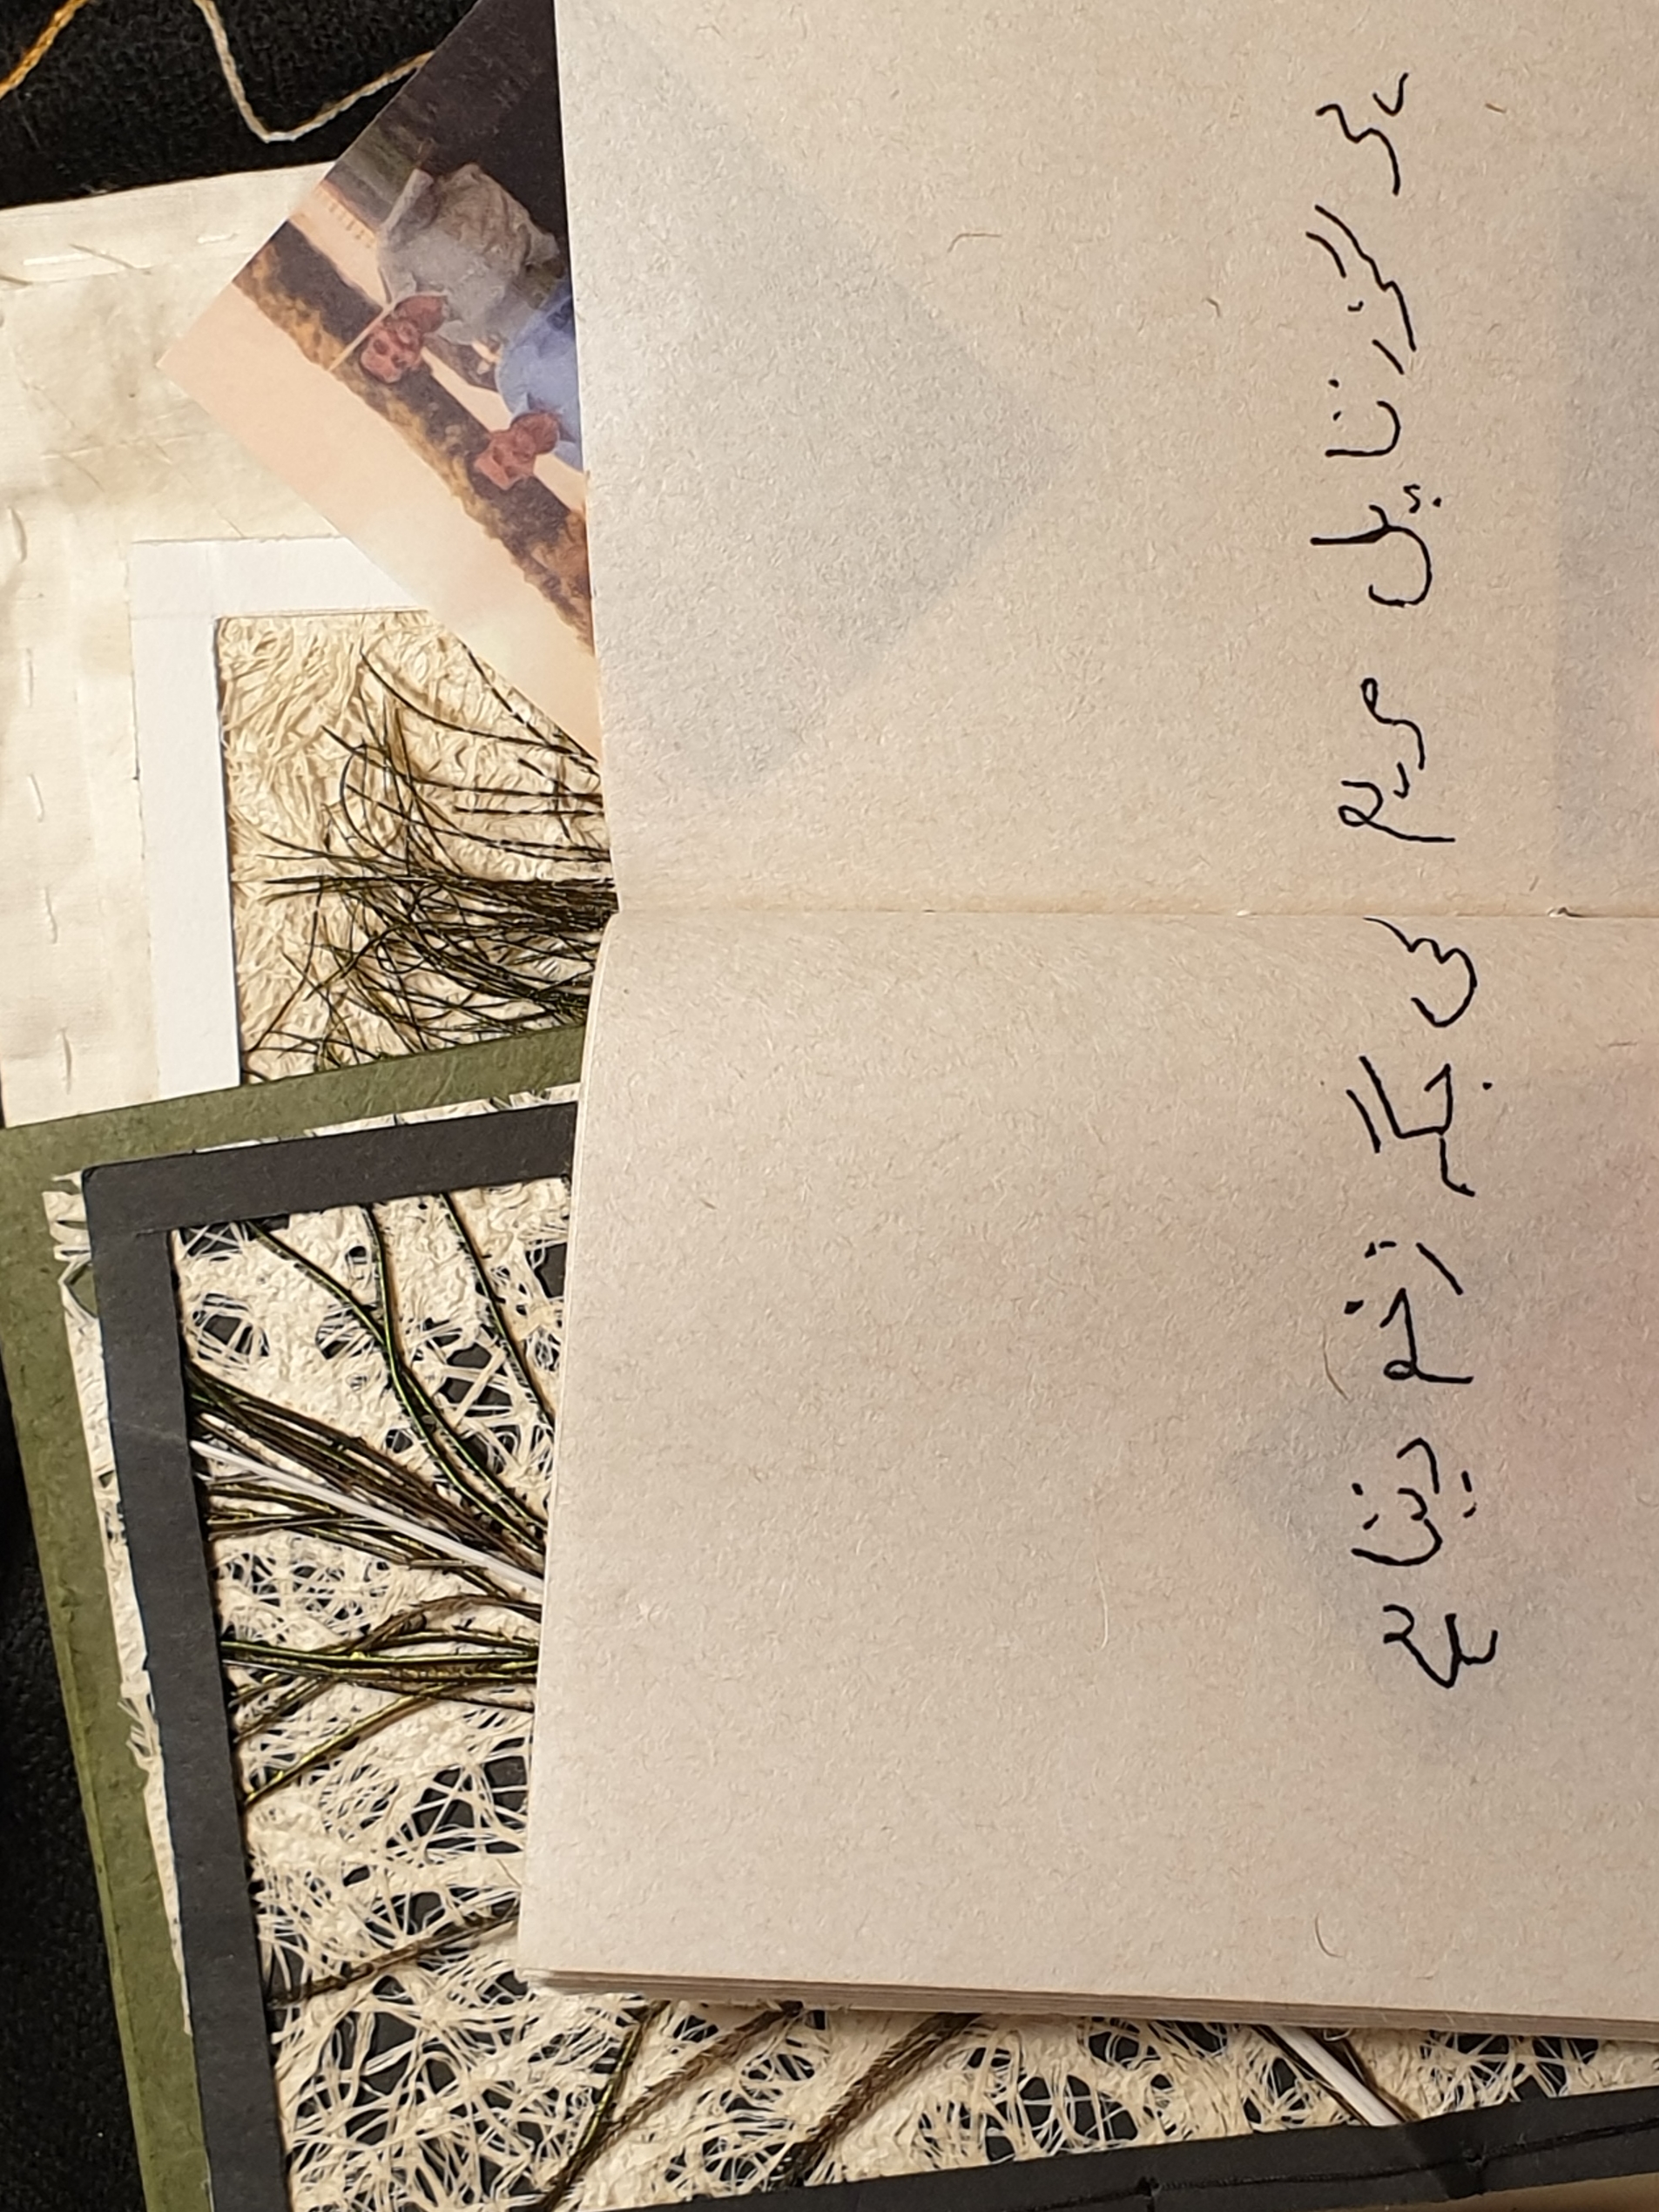 ہر گزرتا پل مرہم کی جگہ زخم دیتا ہے